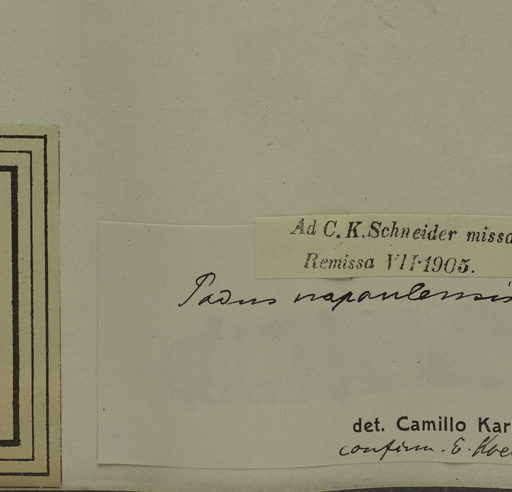 Ad C. K. Schneider missa
Remissa VII·1905.
Padus napaulensis
det. Camillo Kar
confirm. E. Koe